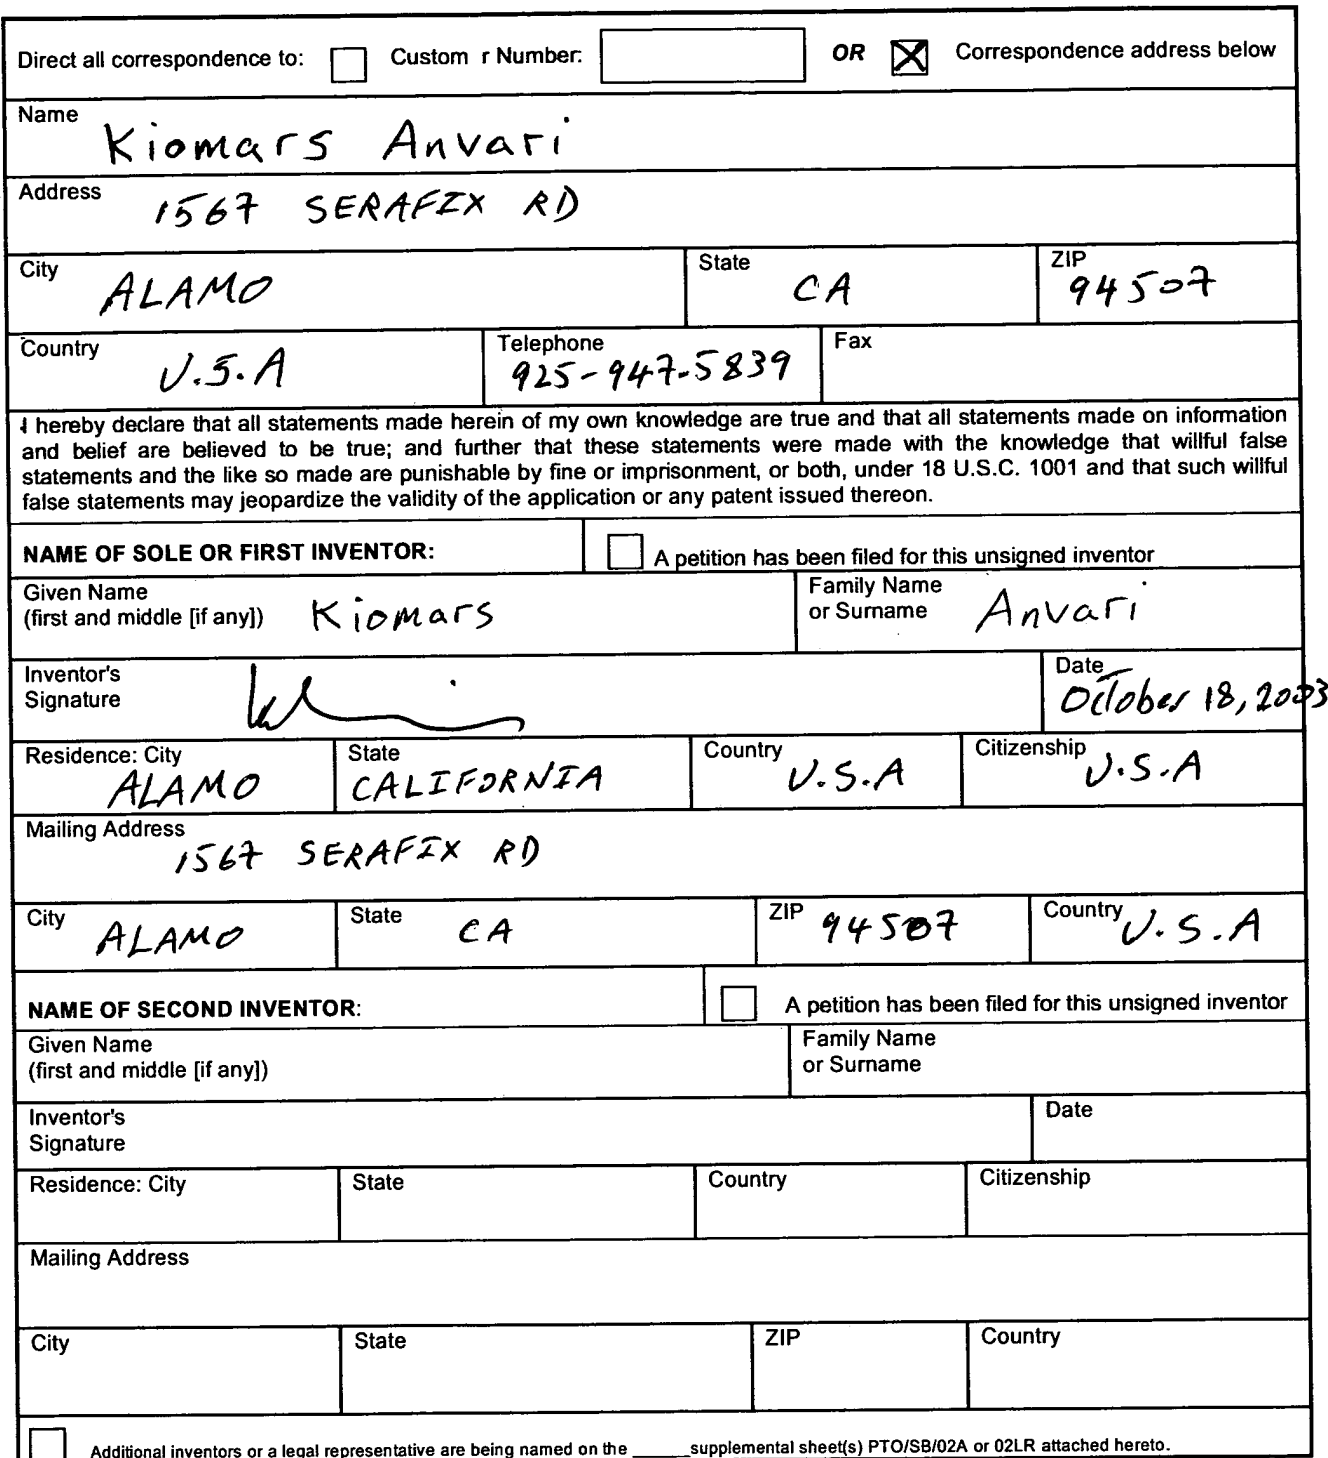 Direct all correspondence to: Custom r Number: OR Correspondence address below
Name
Kiomars Anvari
Address
1567 SERAFIX RD
City ALAMO State CA ZIP 94507
Country U.S.A Telephone 925-947-5839 Fax
I hereby declare that all statements made herein of my own knowledge are true and that all statements made on information
and belief are believed to be true; and further that these statements were made with the knowledge that willful false
statements and the like so made are punishable by fine or imprisonment, or both, under 18 U.S.C. 1001 and that such willful
false statements may jeopardize the validity of the application or any patent issued thereon.
NAME OF SOLE OR FIRST INVENTOR: A petition has been filed for this unsigned inventor
Given Name
(first and middle [if any]) Kiomars
Family Name
or Surname Anvari
Inventor's
Signature
Date
October 18, 2003
Residence: City ALAMO State CALIFORNIA Country U.S.A Citizenship U.S.A
Mailing Address
1567 SERAFIX RD
City ALAMO State CA ZIP 94507 Country U.S.A
NAME OF SECOND INVENTOR: A petition has been filed for this unsigned inventor
Given Name
(first and middle [if any])
Family Name
or Surname
Inventor's
Signature
Date
Residence: City State Country Citizenship
Mailing Address
City State ZIP Country
Additional inventors or a legal representative are being named on the _____ supplemental sheet(s) PTO/SB/02A or 02LR attached hereto.